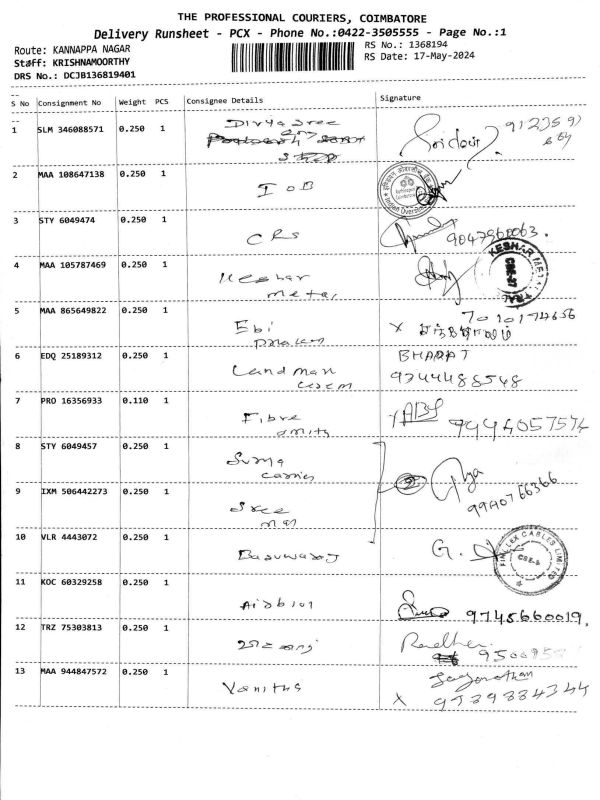 THE PROFESSIONAL COURIERS, COIMBATORE
Delivery Runsheet - PCX - Phone No.:0422-3505555 - Page No.:1
Route: KANNAPPA NAGAR
RS No.: 1368194
Støff: KRISHNAMOORTHY
RS Date: 17-May-2024
DRS No.: DCJB136819401
S No Consignment No Weight PCS Consignee Details Signature
1 SLM 346088571 0.250 1 Divya Sree
2 MAA 108647138 0.250 1 IOB
3 STY 6049474 0.250 1 CRS 9047960063.
4 MAA 105787469 0.250 1 Keshar
Metal KESHAR METAL
5 MAA 865649822 0.250 1 Ebi X 7010174656
6 EDQ 25189312 0.250 1 Land mark BHARAT
9344488548
7 PRO 16356933 0.110 1 Fibre ABS
9444057574
8 STY 6049457 0.250 1 Suma
carrier
9 IXM 506442273 0.250 1 Sree 9940766366
10 VLR 4443072 0.250 1 G.
FINOLEX CABLES LIMITED
11 KOC 60329258 0.250 1 9745660019.
12 TRZ 75303813 0.250 1 Radha
13 MAA 944847572 0.250 1 Vanitha
X 9539884344